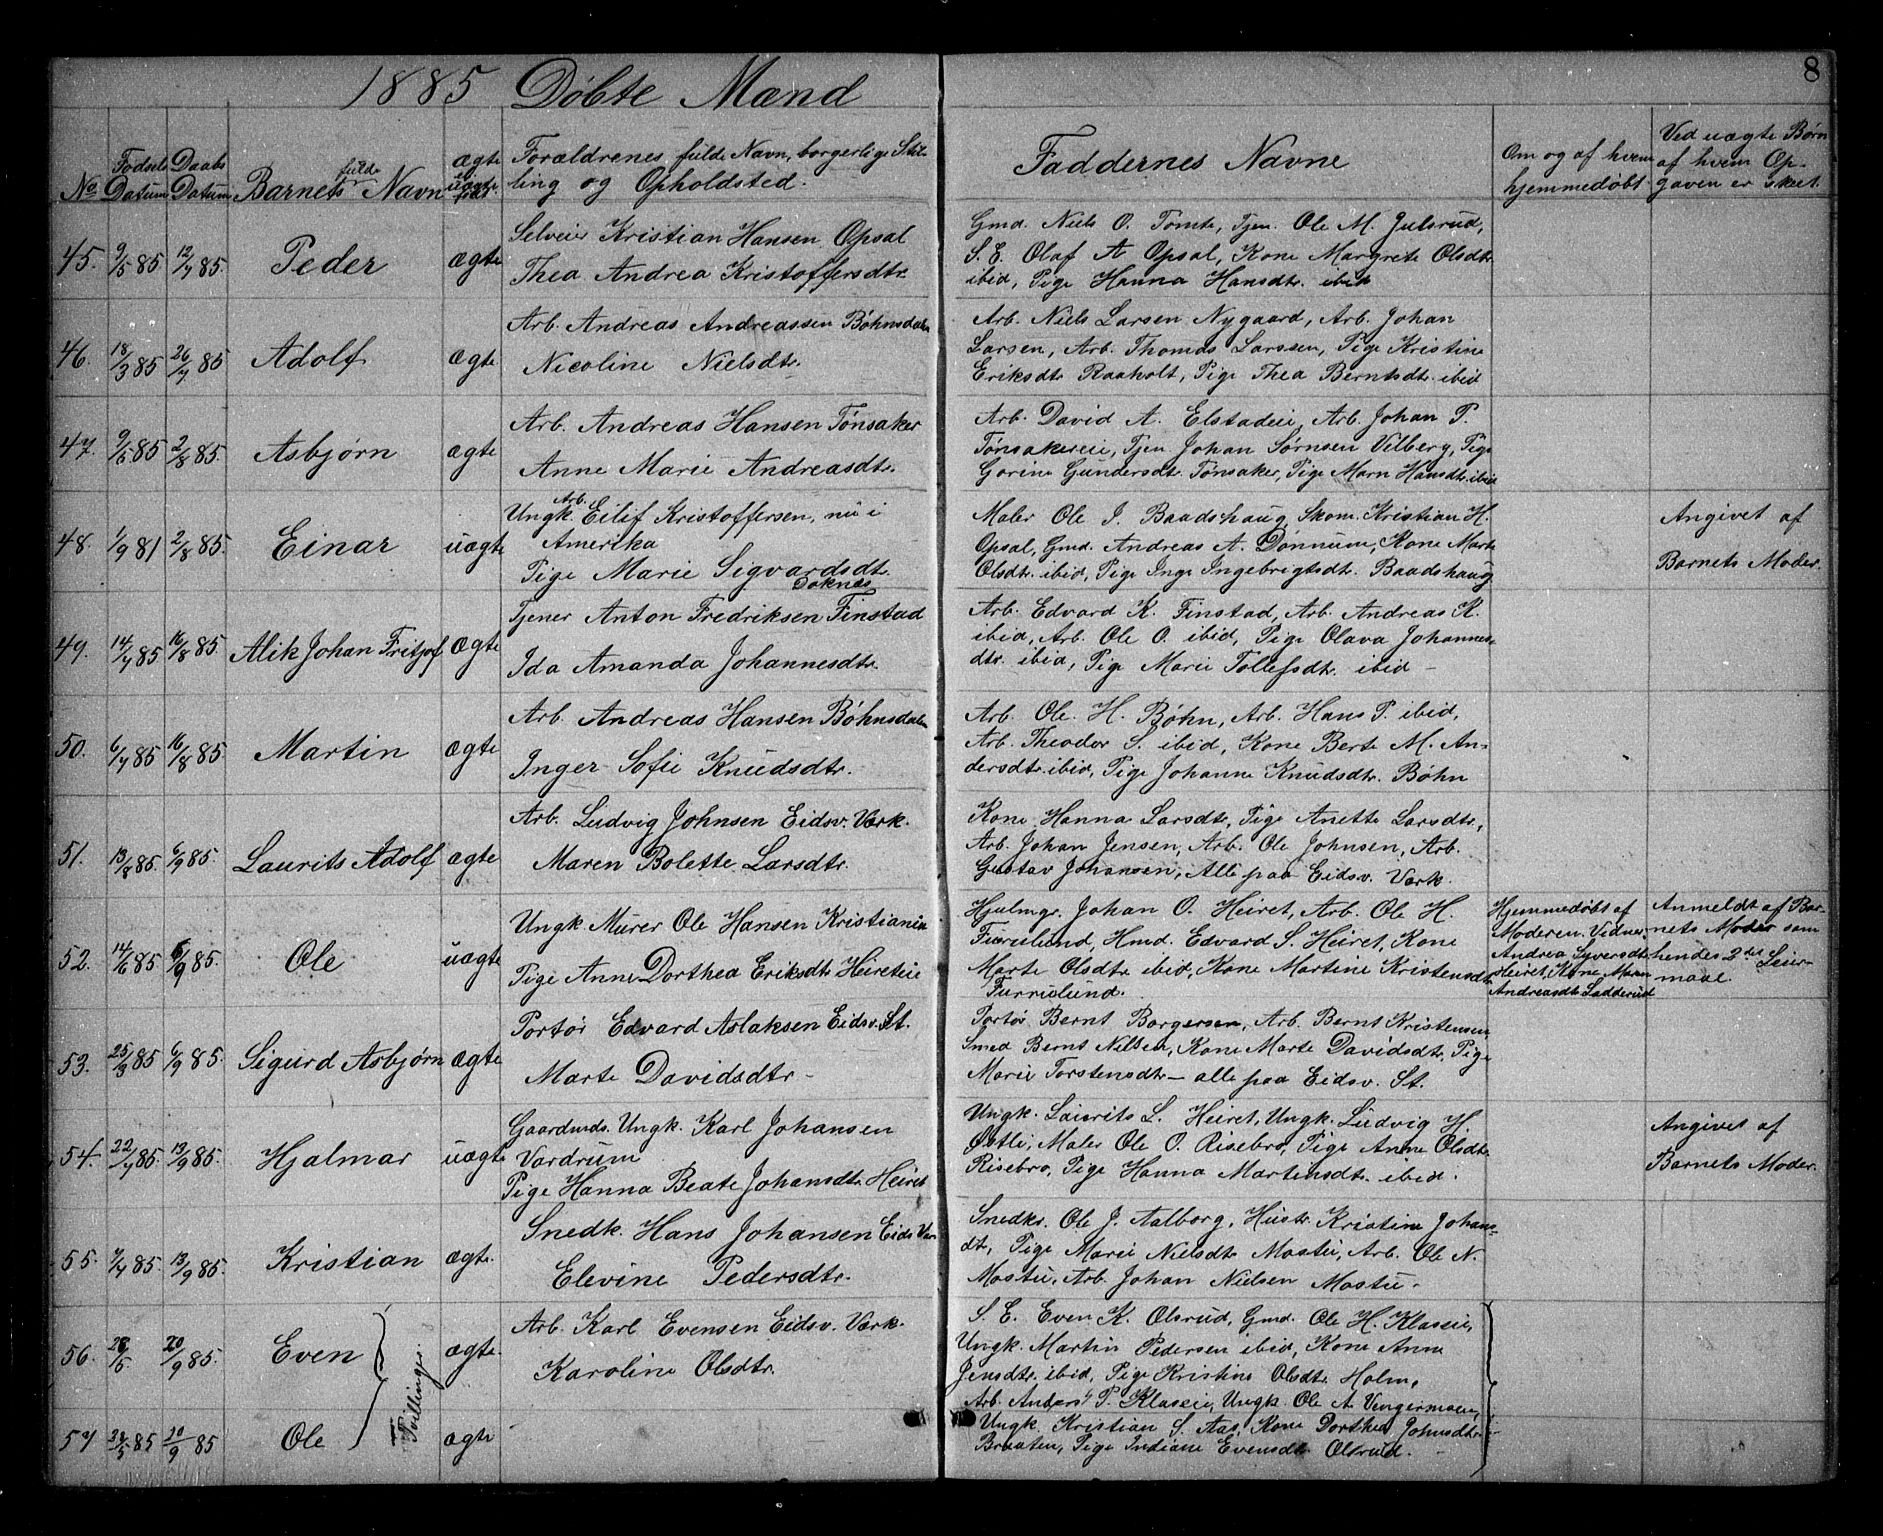 8
1885 Döbte Mænd
No
Fødsels Datum
Daabs Datum
Barnets fulde Navn
ægte el. uægte født
Forældrenes fulde Navn, borgerlige Stil-
ling og Opholdsted.
Faddernes Navne
Om og af hvem
hjemmedøbt
Ved uægte Børn
af hvem Op-
gaven er skeet.
45. 9/5 85 12/7 85. Peder ægte
Selveier Kristian Hansen Opsal
Thea Andrea Kristoffersdtr.
Gmd. Niels O. Tømte, Tjen. Ole M. Julsrud,
S. E. Olaf A Opsal, Kone Margrete Olsdtr.
ibid, Pige Hanna Hansdtr. ibid
46. 18/3 85 26/7 85 Adolf ægte
Arb. Andreas Andreassen Bøhnsdalen
Nicoline Nielsdtr.
Arb. Niels Larsen Nygaard, Arb. Johan
Larsen, Arb. Thomas Larssen, Pige Kristine
Eriksdtr Raaholt, Pige Thea Berntsdtr. ibid
47. 9/5 85 2/8 85. Asbjørn ægte
Arb. Andreas Hansen Tønsaker
Anne Marie Andreasdtr.
Arb. David A. Elstadeie, Arb. Johan P.
Tønsakereie, Tjen Johan Sørnsen Vilberg, Pige
Gorine Gundersdtr. Tønsaker, Pige Marn Hansdtr. ibid
48. 1/9 81 2/8 85. Einar uægte
Ungk. Arb. Eilif Kristoffersen, nu i
Amerika
Pige Marie Sigvardsdtr.
Doknæs
Maler Ole J. Baadshaug, Skom. Kristian H.
Opsal, Gmd. Andreas A. Dønnum, Kone Marte
Olsdtr. ibid, Pige Inge Ingebrigtsdtr. Baadshaug
Angivet af
Barnets Moder.
49. 14/7 85 16/8 85. Alik Johan Fritjof ægte
Tjener Anton Fredriksen Finstad
Ida Amanda Johannesdtr.
Arb. Edvard K. Finstad, Arb. Andreas K.
ibid, Arb. Ole O. ibid, Pige Olava Johannes-
dtr. ibid, Pige Marie Tollefsdtr. ibid -
50. 6/7 85 16/8 85. Martin ægte
Arb. Andreas Hansen Bøhnsdalen
Inger Sofie Knudsdtr.
Arb. Ole. H. Bøhn, Arb. Hans P. ibid,
Arb. Theodor S. ibid, Kone Berte M. An-
dersdtr. ibid, Pige Johanne Knudsdtr. Bøhn
51. 13/8 85. 6/9 85. Laurits Adolf ægte
Arb. Ludvig Johnsen Eidsv. Værk.
Maren Bolette Larsdtr.
Kone Hanna Larsdtr, Pige Anette Larsdtr,
Arb. Johan Jensen, Arb. Ole Johnsen, Arb.
Gustav Johansen, Alle paa Eidsv. Værk.
52. 14/6 85 6/9 85. Ole uægte
Ungk. Murer Ole Hansen Kristiania
Pige Anne Dorthea Eriksdtr Heireteie
Hjulmgr. Johan O. Heiret, Arb. Ole H.
Furrulund, Hmd. Edvard S. Heiret, Kone
Marte Olsdtr. ibid, Kone Martine Kristensdtr
Furrulund.
Hjemmedøbt af
Moderen. Vidner
Andrea Syversdtr
Heiret, Kone Maren
Andreasdtr Ladderud
Anmeldt af Bar-
nets Moder som
hendes 2det Leier-
maal.
53. 25/3 85 6/9 85. Sigurd Asbjørn ægte
Portør Edvard Aslaksen Eidsv. St.
Marte Davidsdtr -
Portør Bernt Borgersen, Arb. Bernt Kristensen,
Smed Bernt Nilsen, Kone Marte Davidsdtr, Pige
Marie Torstensdtr - alle paa Eidsv. St.
54. 22/7 85. 13/9 85. Hjalmar uægte
Gaardmds. Ungk. Karl Johansen
Vardrum
Pige Hanna Beate Johansdtr. Heiret
Ungk. Laurits L. Heiret, Ungk. Ludvig H.
Østli, Maler Ole O. Risebro, Pige Anne Olsdtr.
Risebro, Pige Hanna Martinsdtr. ibid.
Angivet af
Barnets Moder.
55. 7/7 85 13/9 85. Kristian ægte.
Snedk. Hans Johansen Eids Vær
Elevine Pedersdtr.
Snedkr. Ole J. Aalborg, Hustr. Kristine Johans-
dt, Pige Marie Nielsdtr Mostu, Arb. Ole N.
Mostu, Arb. Johan Nielsen Mostu -
56. 28/5 20/9 85. Even ægte.
Tvillinger.
Arb. Karl Evensen Eidsv. Værk.
Karoline Olsdtr.
S. E. Even K. Olsrud, Gmd. Ole H. Klaseie,
Ungk. Martin Pedersen ibid, Kone Anne
Jensdtr. ibid, Pige Kristine Olsdtr. Holm,
57 28/5 85 20/9 85 Ole ægte
Arb. Anders P. Klaseie, Ungk. Ole A Vengermoen,
Ungk. Kristian S. Aas, Kone Dorthea Johnsdtr.
Braaten, Pige Indiane Evensdtr Olsrud.